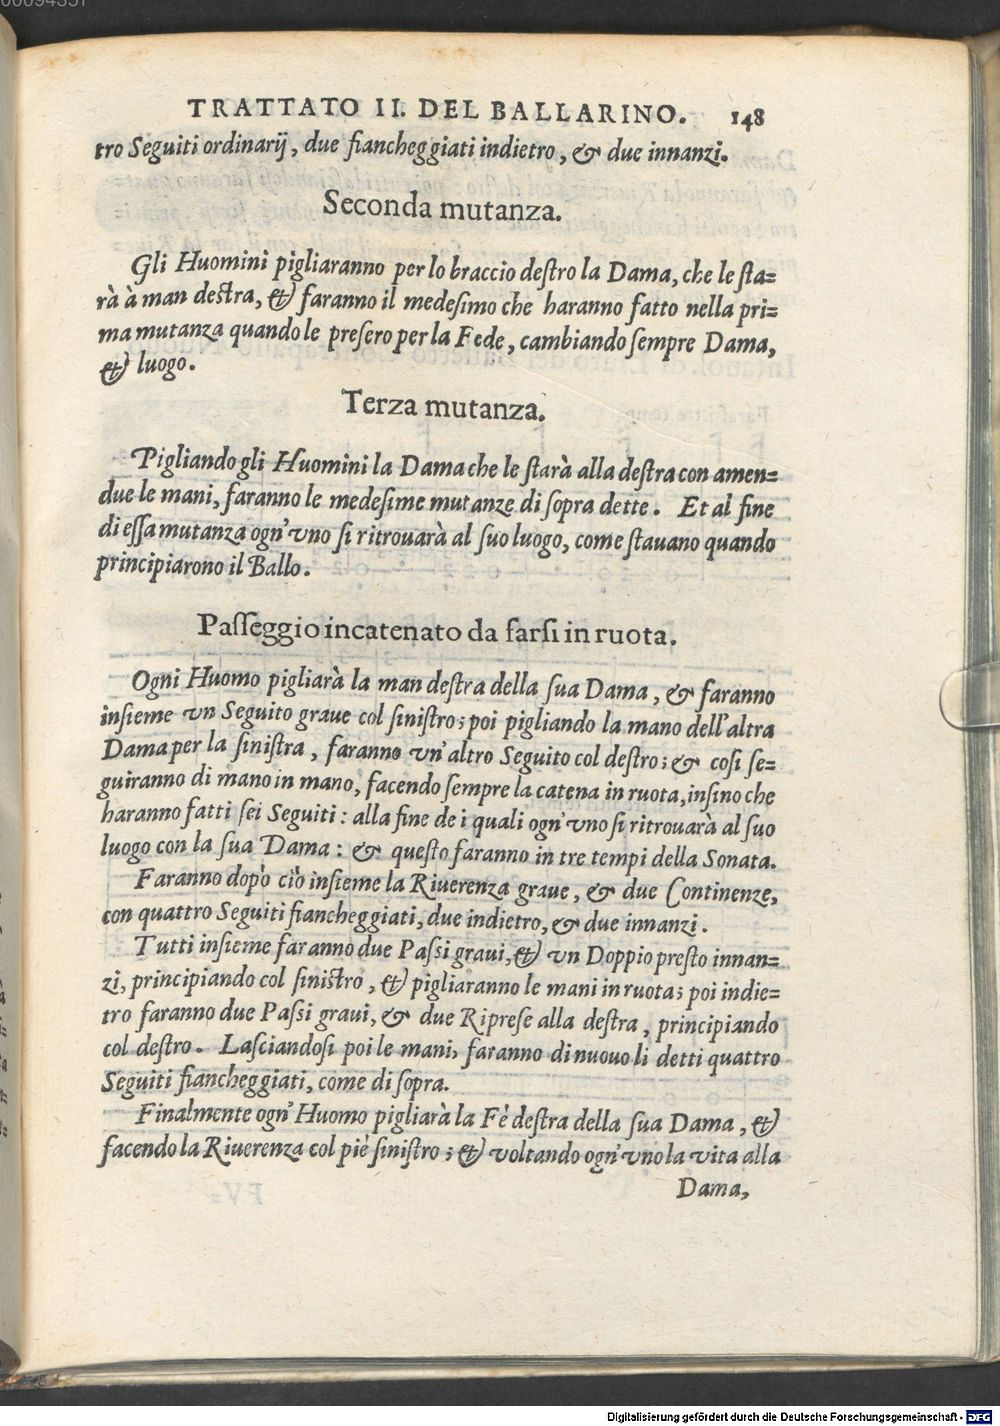 00094357
TRATTATO II. DEL BALLARINO. 148
tro Seguiti ordinarij, due fiancheggiati indietro, & due innanzi.
Seconda mutanza.
Gli Huomini pigliaranno per lo braccio deſtro la Dama, che le ſta=
rà à man deſtra, & faranno il medeſimo che haranno fatto nella pri=
ma mutanza quando le preſero per la Fede, cambiando ſempre Dama,
& luogo.
Terza mutanza.
Pigliando gli Huomini la Dama che le ſtarà alla deſtra con amen=
due le mani, faranno le medeſime mutanze di ſopra dette. Et al fine
di eſſa mutanza ogn'vno ſi ritrouarà al ſuo luogo, come ſtauano quando
principiarono il Ballo.
Paſſeggio incatenato da farſi in ruota.
Ogni Huomo pigliarà la man deſtra della ſua Dama, & faranno
inſieme vn Seguito graue col ſiniſtro; poi pigliando la mano dell'altra
Dama per la ſiniſtra, faranno vn'altro Seguito col deſtro; & coſi ſe=
guiranno di mano in mano, facendo ſempre la catena in ruota, inſino che
haranno fatti ſei Seguiti: alla fine de i quali ogn'vno ſi ritrouarà al ſuo
luogo con la ſua Dama: & queſto faranno in tre tempi della Sonata.
Faranno dopò ciò inſieme la Riuerenza graue, & due Continenze,
con quattro Seguiti fiancheggiati, due indietro, & due innanzi.
Tutti inſieme faranno due Paſsi graui, & vn Doppio preſto innan=
zi, principiando col ſiniſtro, & pigliaranno le mani in ruota; poi indie=
tro faranno due Paſsi graui, & due Ripreſe alla deſtra, principiando
col deſtro. Laſciandoſi poi le mani, faranno di nuouo li detti quattro
Seguiti fiancheggiati, come di ſopra.
Finalmente ogn'Huomo pigliarà la Fè deſtra della ſua Dama, &
facendo la Riuerenza col piè ſiniſtro; & voltando ogn'vno la vita alla
Dama,
Digitalisierung gefördert durch die Deutsche Forschungsgemeinschaft - DFG